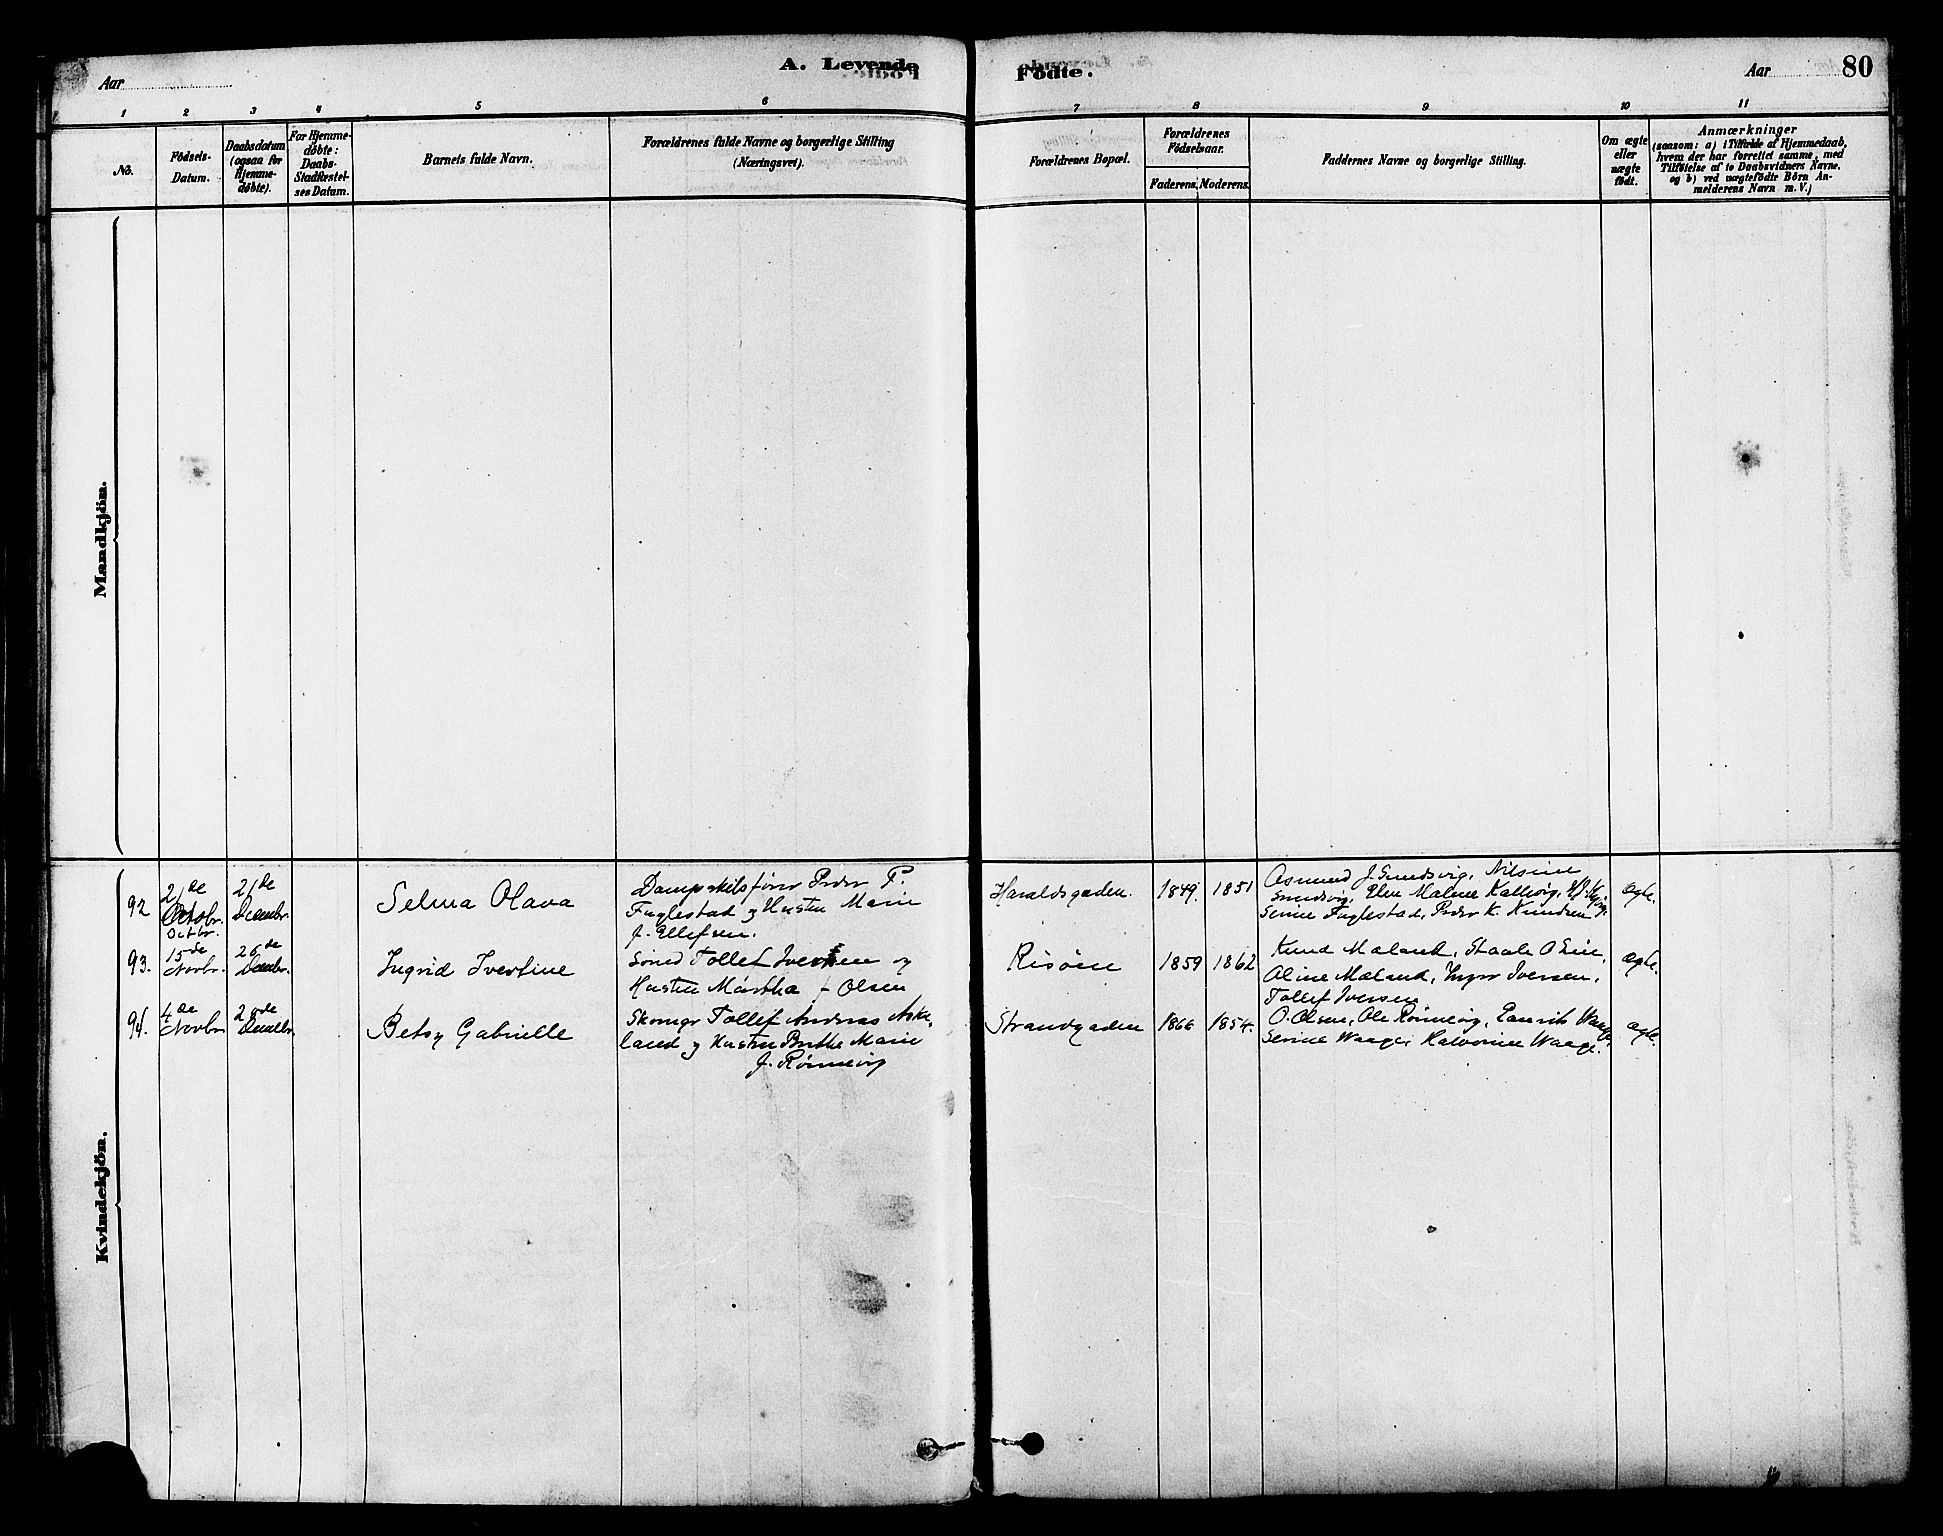 A. Levende Födte.
Aar
Aar 80
1 2 3 4 5 6 7 8 9 10 11
No.
Födsels-
Datum.
Daabsdatum
(ogsaa for
Hjemme-
döbte).
For Hjemme-
döbte:
Daabs-
Stadfæstel-
ses Datum.
Barnets fulde Navn.
Forældrenes fulde Navne og borgerlige Stilling
(Næringsvei).
Forældrenes Bopæl.
Forældrenes
Födselsaar.
Faderens. Moderens.
Faddernes Navne og borgerlige Stilling.
Om ægte
eller
uægte
födt.
Anmærkninger
(saasom: a) i Tilfælde af Hjemmedaab,
hvem der har forrettet samme, med
Tilföielse af to Daabsvidners Navne,
og b) ved uægtefödte Börn An-
melderens Navn m. V.)
Mandkjön.
Kvindekjön.
92
21de
Octobr.
Octbr.
21de
Decembr.
Selma Olava
Dampskibsfører Peder P.
Fuglestad og Hustru Marie
J. Ellefsen.
Haraldsgaden.
1849. 1851
Asmund J. Smedsvig, Nilsine
Smedsvig, Elen Malene Kallevig,
Serine Fuglestad, Peder K. Knudsen
ægte.
93.
15de
Novbr.
26de
Decbr.
Ingrid Ivertine
Smed Tollef Iversen og
Hustru Martha Olsen
Risöen
1859 1862
Knud Maland, Staale Olsen,
Oline Maland, Inger Iversen,
Tollef Iversen
ægte.
94.
4de
Novbr
Betsy Gabrielle
Skomgr Tollef Andreas Aske-
land og Hustru Brithe Marie
J. Rønnevig
Strandgaden
1866 1854.
O. Olsen, Ole Rønnevig, Waage
Serine Waage, Halvorine Waage.
ægte.